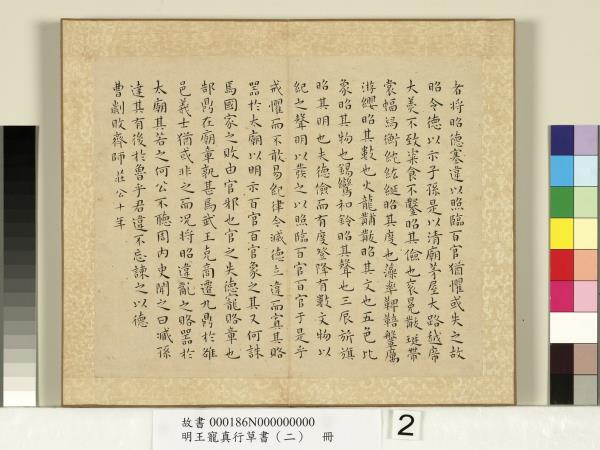 者將昭德塞違以照臨百官猶懼或失之故
昭令德以示子孫是以清廟茅屋大路越席
大羹不致粢食不鑿昭其儉也袞冕黻珽帶
裳幅舄衡紞紘綖昭其度也藻率鞞鞛鞶厲
游纓昭其數也火龍黼黻昭其文也五色比
象昭其物也鍚鸞和鈴昭其聲也三辰旂旗
昭其明也夫德儉而有度登降有數文物以
紀之聲明以發之以照臨百官百官于是乎
戒懼而不敢易紀律今滅德立違而寘其賂
器於太廟以明示百官百官象之其又何誅
焉國家之敗由官邪也官之失德寵賂章也
郜鼎在廟章孰甚焉武王克商遷九鼎於雒
邑義士猶或非之而況將昭違亂之賂器於
太廟其若之何公不聽周内史聞之曰臧孫
達其有後於魯乎君違不忘諫之以德
曹劌敗齊師 莊公十年
故書 000186N000000000
明王寵真行草書（二） 冊
2